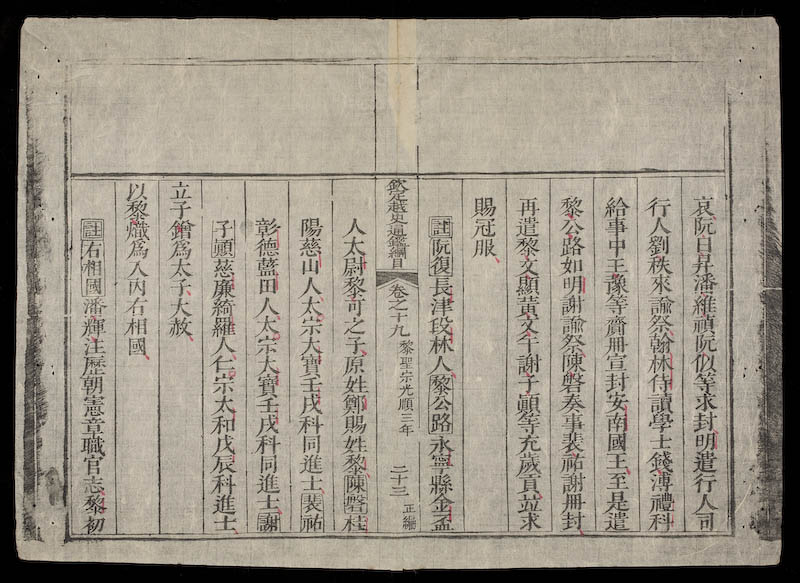 哀阮自昇潘維禎阮似等求封明遣行人司
行人劉秩來諭祭翰林侍讀學士錢溥禮科
給事中王豫等齎冊宣封安南國王至是遣
黎公路如明謝諭祭陳磐奏事裴祐謝冊封
再遣黎文顯黃文午謝子顛等充歲貢竝求
賜冠服
註阮復長津段林人黎公路永寧縣金盃
欽定越史通鑑綱目 卷之十九 黎聖宗光順三年 二十三 正編
人太尉黎可之子原姓鄭賜姓黎陳磐桂
陽慈山人太宗大寶壬戌科同進士裴祐
彰德藍田人太宗大寶壬戌科同進士謝
子顛慈廉綺羅人仁宗太和戊辰科進士
立子鏳爲太子大赦
以黎熾爲入內右相國
註右相國潘輝注歷朝憲章職官志黎初